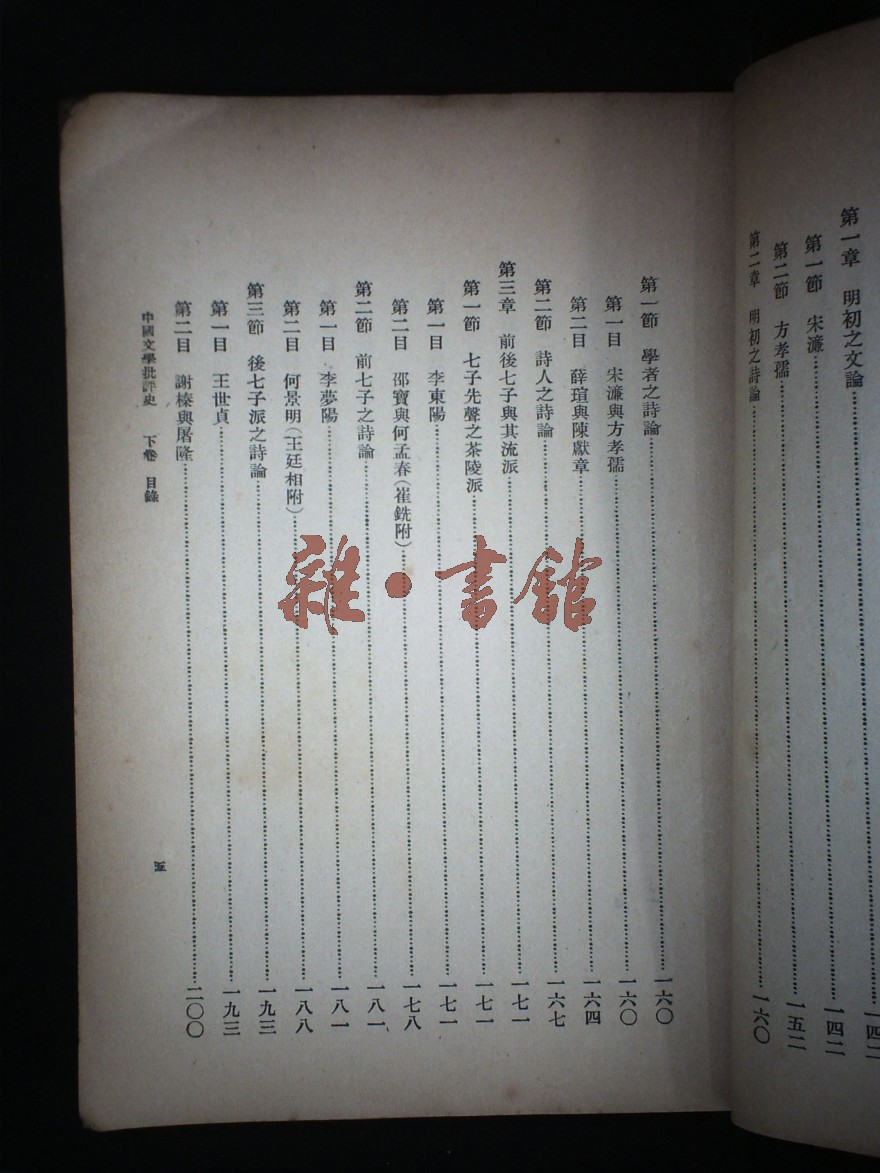 第一章　明初之文論……一四二
第一節　宋濂……一四二
第二節　方孝孺……一五二
第二章　明初之詩論……一六〇
第一節　學者之詩論……一六〇
第一目　宋濂與方孝孺……一六〇
第二目　薛瑄與陳獻章……一六四
第二節　詩人之詩論……一六七
第三章　前後七子與其流派……一七一
第一節　七子先聲之茶陵派……一七一
第一目　李東陽……一七一
第二目　邵寶與何孟春(崔銑附)……一七八
第二節　前七子之詩論……一八一
第一目　李夢陽……一八一
第二目　何景明(王廷相附)……一八八
第三節　後七子派之詩論……一九三
第一目　王世貞……一九三
第二目　謝榛與屠隆……二〇〇
中國文學批評史　下卷　目錄
五
雜・書館